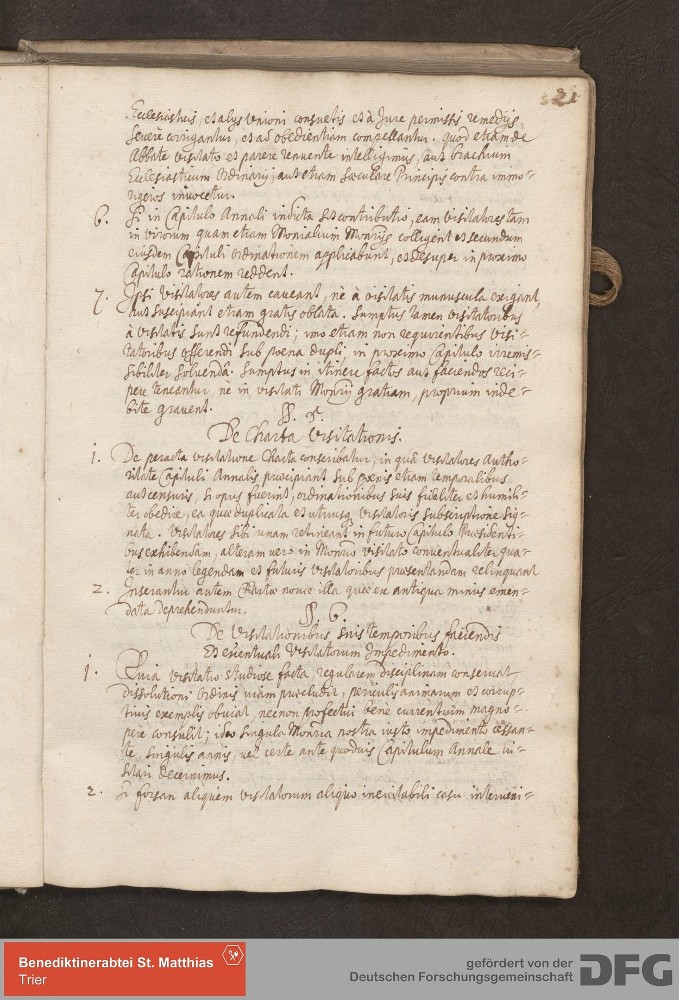 321
Ecclesiasticis, et alys Unioni consuetis et à Jure permissis remedijs
severè corrigantur, et ad obedientiam compellantur. quod etiam de
Abbate visitato et parere renuente intelligimus, aut brachium
Ecclesiasticum Ordinarij, aut etiam sæculare Principis contra immo-
rigeros invocetur.
6. Si in Capitulo Annali indicta sit contributio, eam visitatores tam
in virorum quam etiam Monialium Monrijs colligent et secundum
eiusdem Capituli ordinationem applicabunt, et desuper in proximo
Capitulo rationem reddent.
7. Ipsi visitatores autem caveant, nè à visitatis munuscula exigant,
aut suscipiant etiam gratis oblata. Sumptus tamen visitatoribus
à visitatis sunt refundendi; imo etiam non requirentibus visi-
tatoribus offerendi sub poena dupli, in proximo Capitulo irremis-
sibiliter solvenda. Sumptus in itinere factos aut faciendos reci-
pere teneantur, nè in visitati Monrij gratiam, proprium inde-
bite gravent.
§. 5.
De Charta Visitationis.
1. De peracta visitatione Charta conscribatur, in quâ visitatores Autho-
ritate Capituli Annalis præcipiant sub poenis etiam temporalibus
aut censuris, si opus fuerint, ordinationibus suis fideliter et humili-
ter obedire, ea que duplicata et utriusq visitatoris subscriptione sig-
nata. Visitatores sibi unam retineant in futuro Capitulo Præsidenti-
bus exhibendam, alteram vero in Monrio visitato conventualiter qua-
ter in anno legendam et futuris visitatoribus præsentandam relinquant
2. Inserantur autem Chartæ novæ illa quæ ex antiqua minus emen-
data deprehenduntur.
§. 6.
De Visitationibus suis temporibus faciendis
Et eventuali Visitatorum Impedimento.
1. Quia visitatio studiose facta, regularem disciplinam conservat
dissolutioni ordinis viam præcludit, periculis animarum et corrup-
tivis exemplis obviat, necnon profectui bene currentium magno-
pere consulit; ideo singula Monria nostra iusto impedimento cessan-
te, singulis annis, vel certe ante quodvis Capitulum Annale vi-
sitari decernimus.
2. Si forsan aliquem visitatorum aliquo inevitabili casu interveni-
Benediktinerabtei St. Matthias
Trier
gefördert von der
Deutschen Forschungsgemeinschaft
DFG